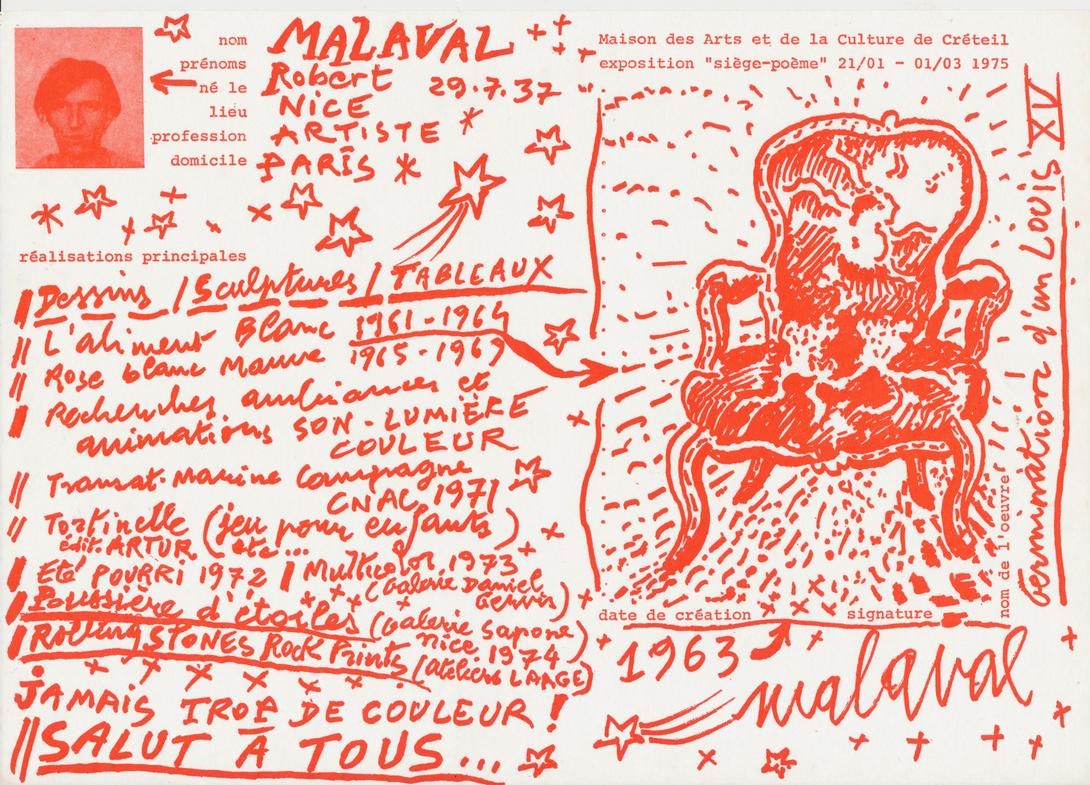 nom MALAVAL
prénoms Robert
né le 29.7.37
lieu NICE
profession ARTISTE
domicile PARIS
réalisations principales
Dessins / Sculptures / TABLEAUX
L'aliment Blanc 1961-1964
Rose blanc Mauve 1965-1969
Recherches ambiances et
animations SON-LUMIÈRE
COULEUR
Transat-Marine Campagne
CNAC 1971
Tortinelle (jeu pour enfants)
édit. ARTUR etc...
Eté POURRI 1972 / Multicolor 1973
(Galerie Daniel
Gervis)
Poussière d'étoiles (Galerie Sapone)
nice 1974
Rolling STONES Rock Prints (ateliers LAAGE)
JAMAIS TROP DE COULEUR !
SALUT À TOUS...
Maison des Arts et de la Culture de Créteil
exposition "siège-poème" 21/01 - 01/03 1975
nom de l'oeuvre
Germination d'un LOUIS XV
date de création
1963
signature
malaval